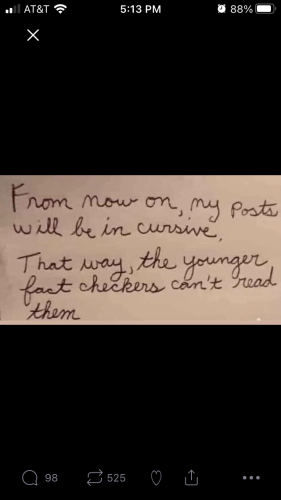 AT&T 5:13 PM 88%
From now on, my posts
will be in cursive.
That way, the younger
fact checkers can't read
them
98 525